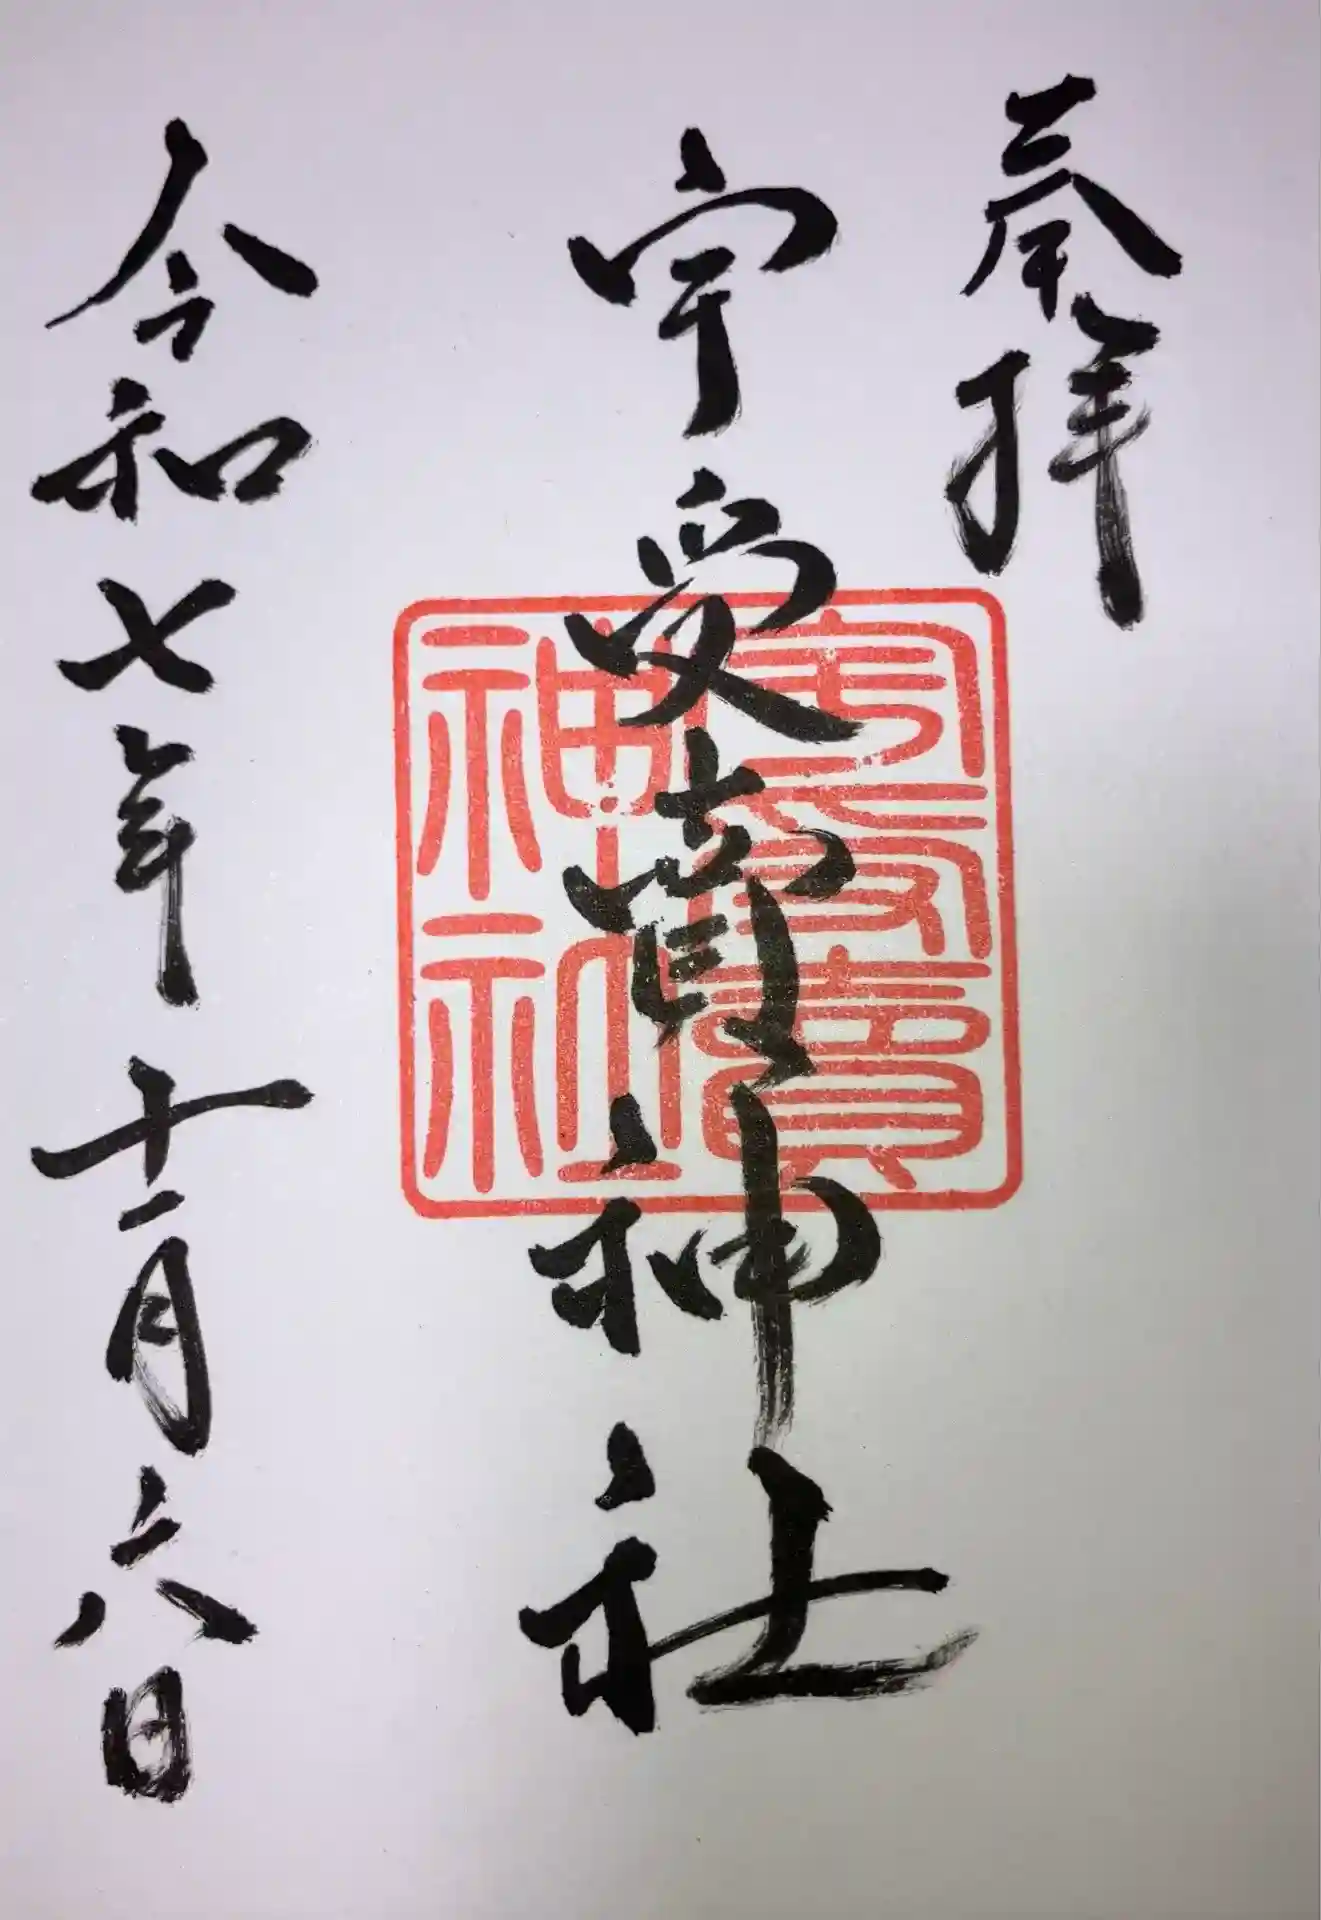 奉拝
宇受賀神社
宇受賀
神社
令和七年十一月六日